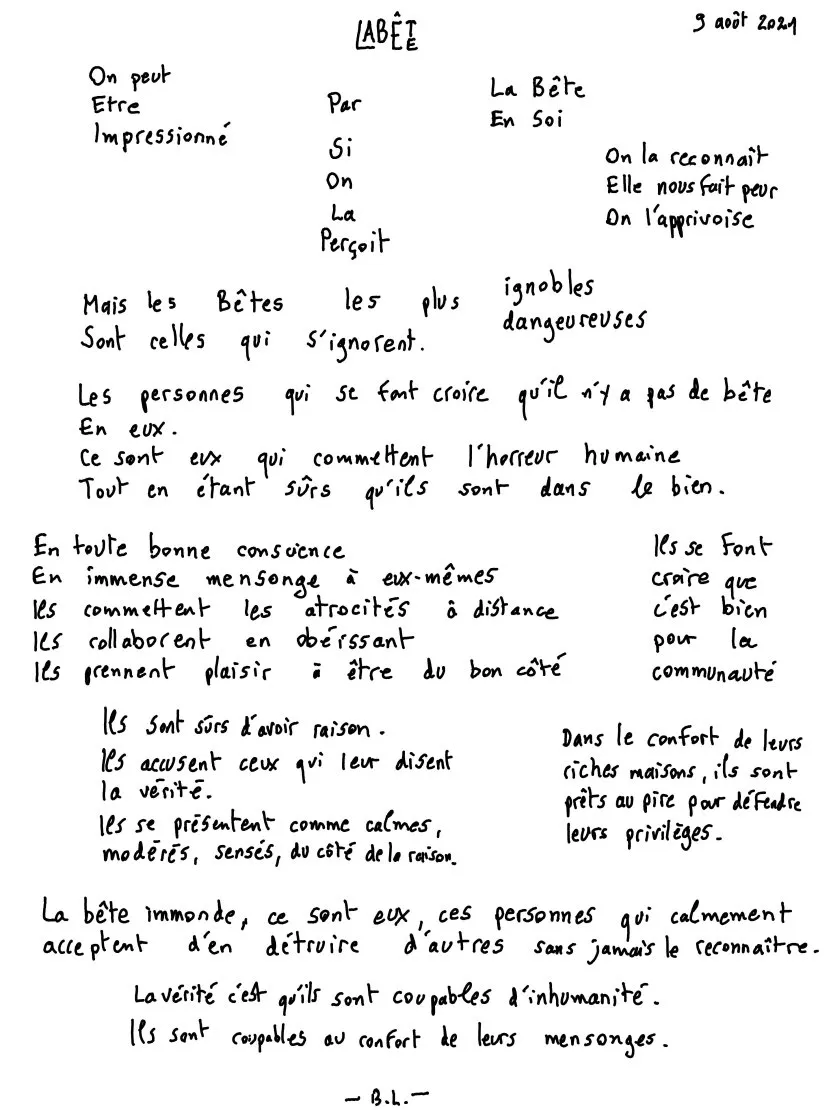 LABÊTE
9 août 2021
On peut
Etre
Impressionné
Par
La Bête
En Soi
Si
On
La
Perçoit
On la reconnaît
Elle nous fait peur
On l'apprivoise
Mais les Bêtes les plus ignobles
dangeureuses
Sont celles qui s'ignorent.
Les personnes qui se font croire qu'il n'y a pas de bête
En eux.
Ce sont eux qui commettent l'horreur humaine
Tout en étant sûrs qu'ils sont dans le bien.
En toute bonne conscience
En immense mensonge à eux-mêmes
Ils commettent les atrocités à distance
Ils collaborent en obéissant
Ils prennent plaisir à être du bon côté
Ils se font
croire que
c'est bien
pour la
communauté
Ils sont sûrs d'avoir raison.
Ils accusent ceux qui leur disent
la vérité.
Ils se présentent comme calmes,
modérés, sensés, du côté de la raison.
Dans le confort de leurs
riches maisons, ils sont
prêts au pire pour défendre
leurs privilèges.
La bête immonde, ce sont eux, ces personnes qui calmement
acceptent d'en détruire d'autres sans jamais le reconnaître.
La vérité c'est qu'ils sont coupables d'inhumanité.
Ils sont coupables au confort de leurs mensonges.
- B.L. -